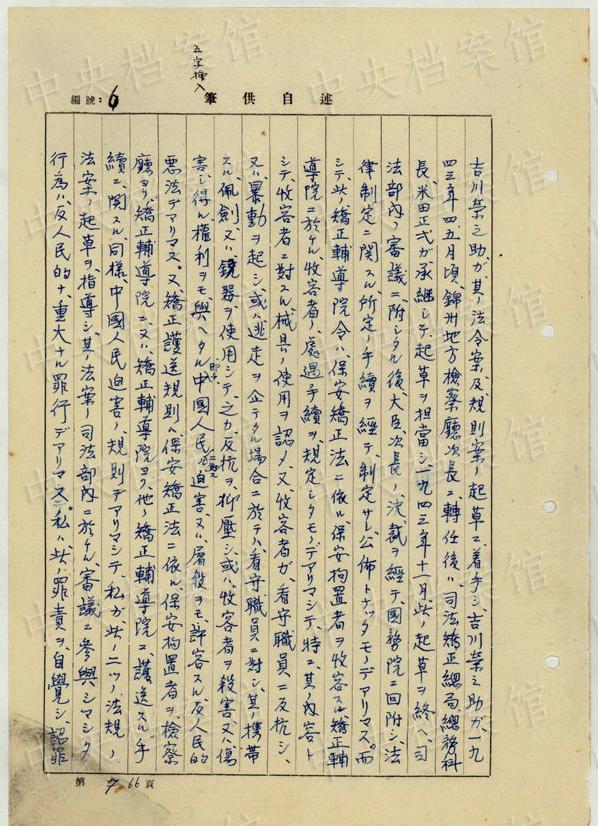 五字挿入
編號：6
述自供筆
吉川榮之助ガ、其ノ法令案、及規則案ノ起草ニ着手シ、吉川榮之助ガ、一九
四三年四五月頃、錦州地方檢察廳次長ニ轉任後ハ、司法矯正總局總務科
長、米田正弐ガ承継シテ、起草ヲ担當シ、一九四三年十一月、此ノ起草ヲ終ヘ、司
法部內ノ審議ニ附シタル後、大臣、次長ノ決裁ヲ經テ、國務院ニ回附シ、法
律制定ニ関スル所定ノ手續ヲ經テ、制定サレ公佈トナッタモノデアリマス。而
シテ、此ノ矯正輔導院令ハ、保安矯正法ニ依ル、保安拘置者ヲ收容スル矯正輔
導院ニ於ケル、收容者ノ處遇手續ヲ、規定シタモノデアリマシテ、特ニ、其ノ內容ト
シテ、收容者ニ對スル械具ノ使用ヲ認メ、又收容者ガ、看守職員ニ反抗シ、
又ハ、暴動ヲ起シ、或ハ、逃走ヲ企テタル場合ニ於テハ、看守職員ニ對シ、其ノ携帶
スル、佩劍又ハ銃器ヲ使用シテ、之ガ反抗ヲ抑壓シ、或ハ、收容者ヲ殺害又ハ傷
害シ得ル權利ヲモ、與ヘタル、即チ、中國人民ニ對スル迫害、又ハ、屠殺ヲモ、許容スル反人民的
悪法デアリマス。又、矯正護送規則ハ、保安矯正法ニ依ル、保安拘置者ヲ、檢察
廳ヨリ、矯正輔導院ニ、又ハ、矯正輔導院ヨリ、他ノ矯正輔導院ニ、護送スル手
續ニ、関スル同樣、中國人民迫害ノ規則デアリマシテ、私ガ、此ノ二ツノ法規ノ
法案ノ起草ヲ、指導シ、其ノ法案ノ司法部內ニ於ケル、審議ニ參與シマシタ
行為ハ、反人民的ナ重大ナル罪行デアリマス。私ハ、此ノ罪責ヲ、自覺シ、認罪
第 66 頁
中央档案馆